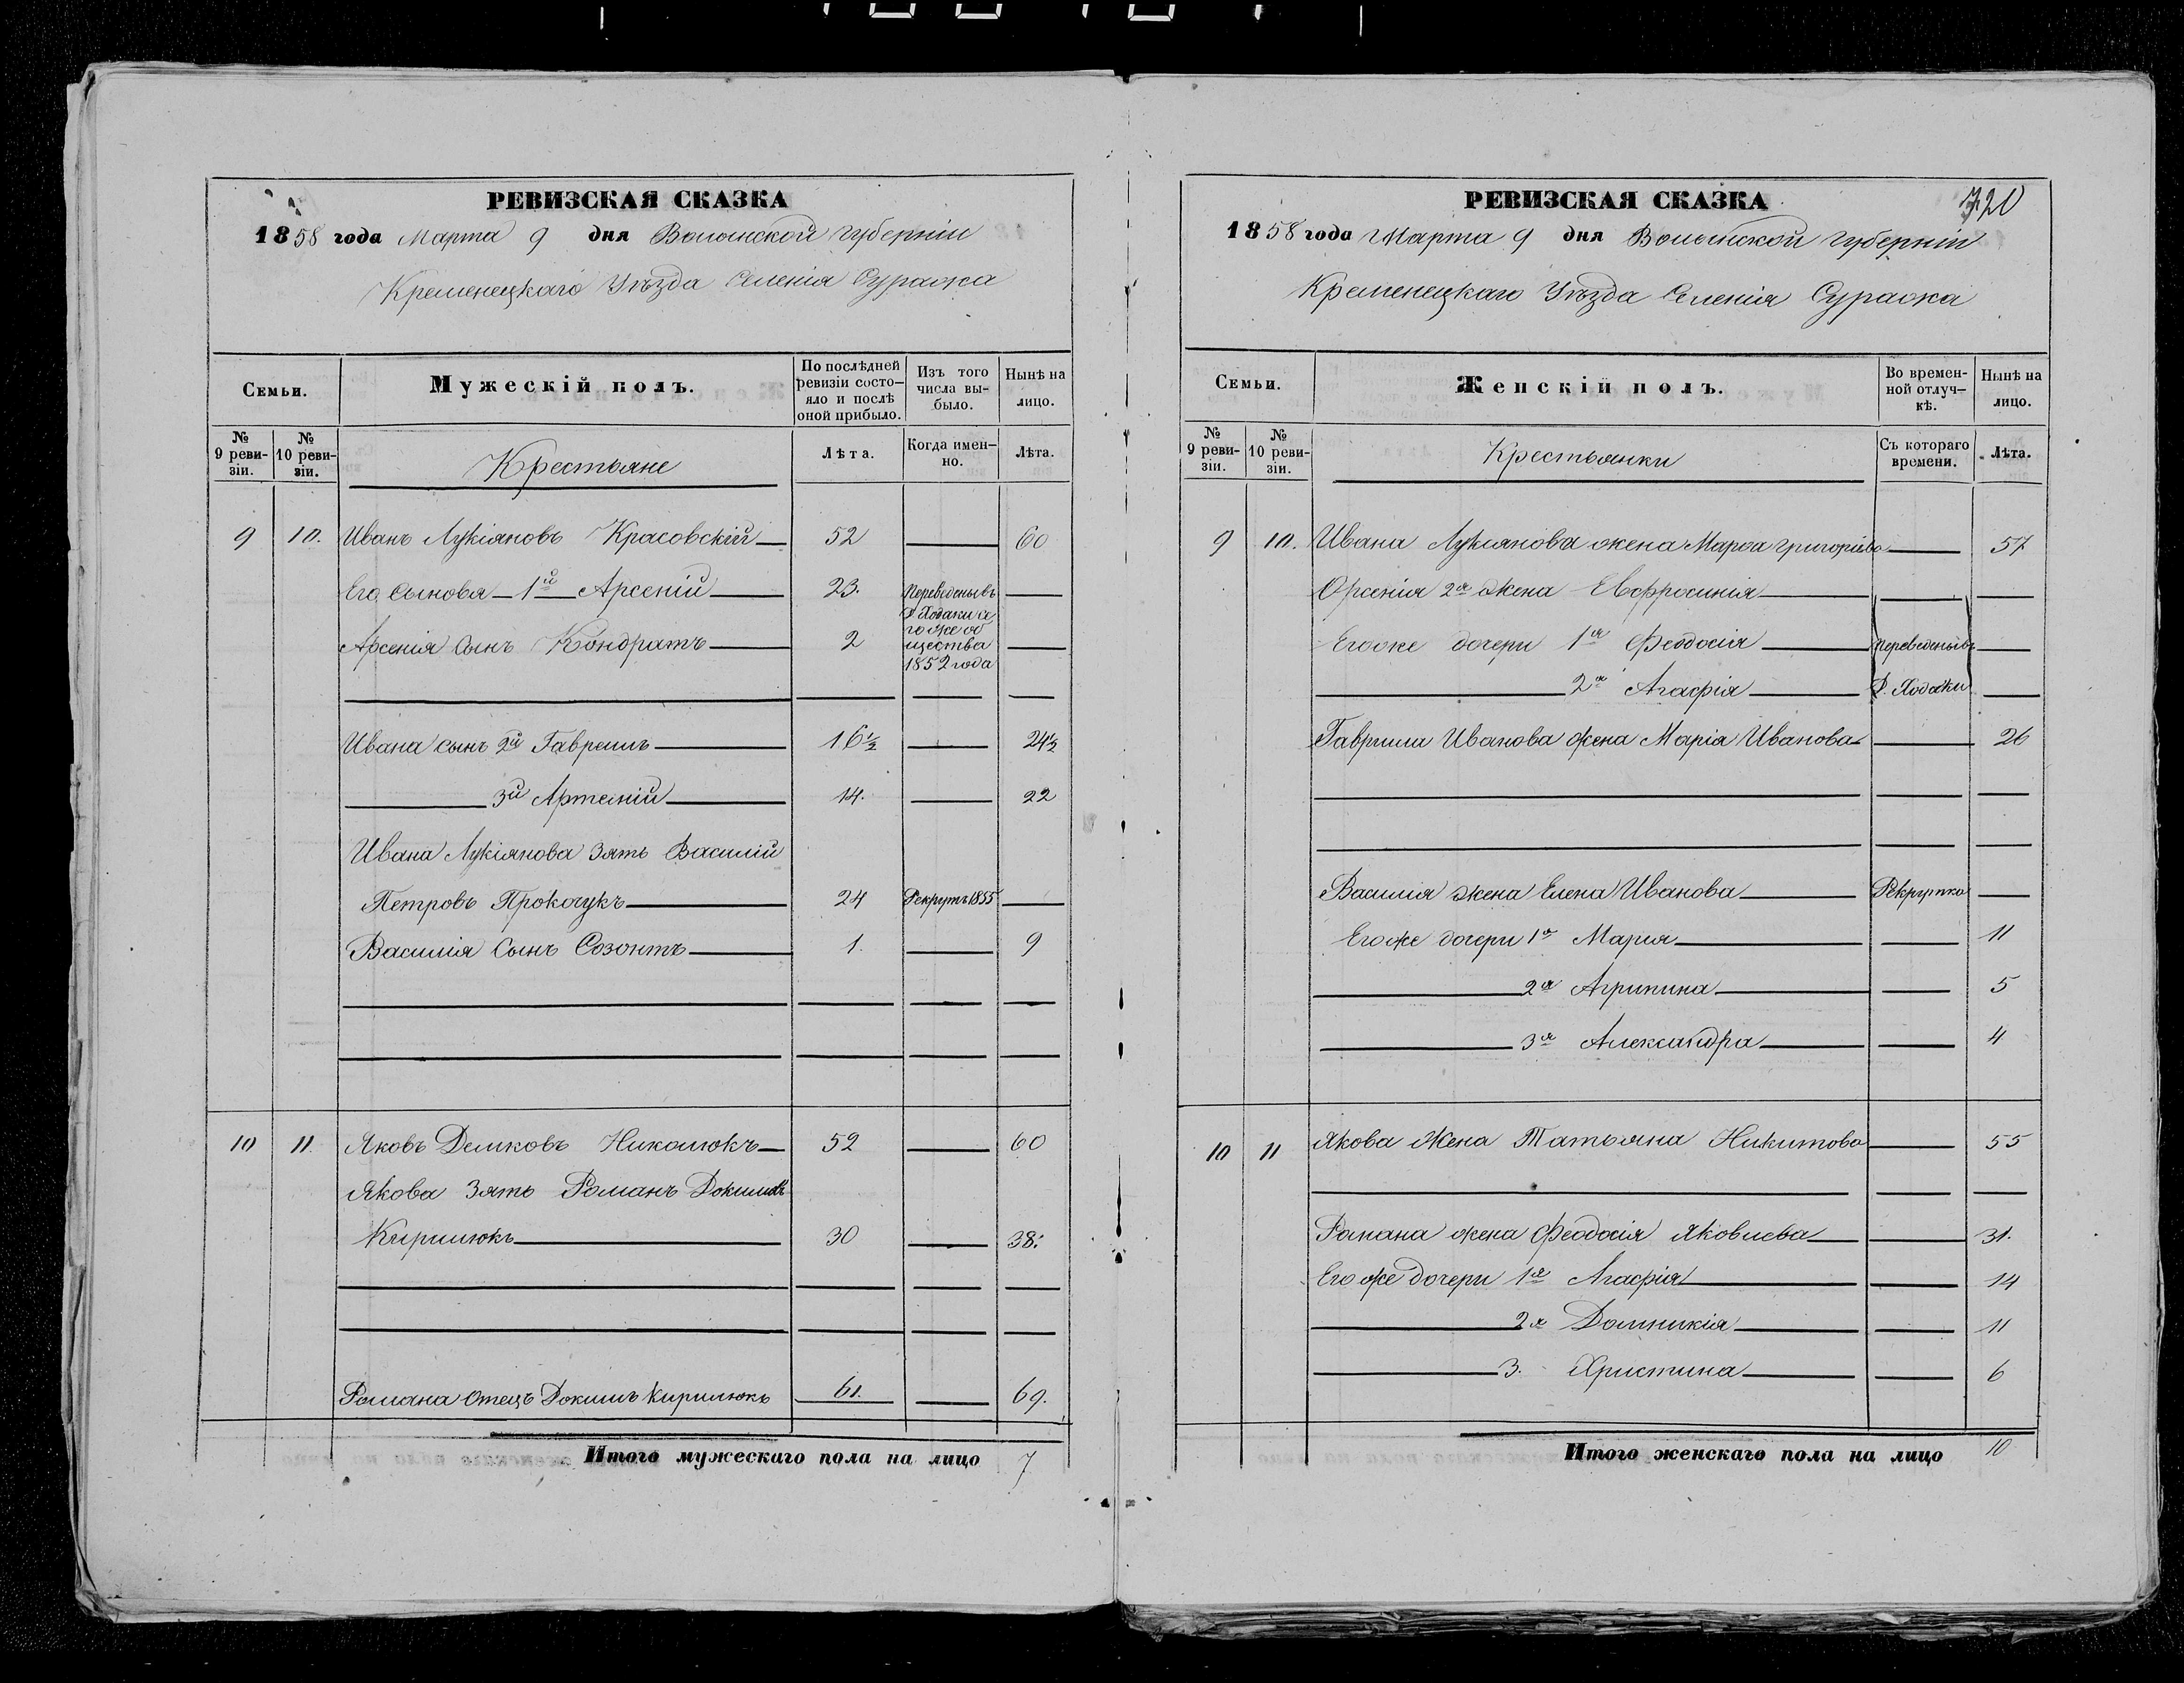 РЕВИЗСКАЯ СКАЗКА
1858 года Марта 9 дня Волынской губерніи
Кременецкаго Уѣзда Селенія Суража
Семьи.
Мужескій полъ.
По послѣдней ревизіи состо-яло и послѣ оной прибыло.
Изъ того числа вы-было.
Нынѣ на лицо.
№ 9 реви-зіи.
№ 10 реви-зіи.
Крестьяне
Лѣта.
Когда имен-но.
Лѣта.
9 10. Иванъ Лукіяновъ Красовскій 52 — 60
Его Сыновья 1й Арсеній 23. Переведены въ —
Д. Ходаки се
го же об
Арсенія Сынъ Кондратъ 2 щества —
1852 года
Ивана сынъ 2й Гавреилъ 16½ — 24½
3й Артемій 14. — 22
Ивана Лукіянова Зять Василій
Петровъ Прокочукъ 24 Рекрутъ 1855 —
Василія Сынъ Созонтъ 1. — 9
10 11. Яковъ Демковъ Николюкъ 52 — 60
Якова Зять Романъ Докимовъ
Кирилюкъ 30 — 38.
Романа Отецъ Докимъ Кирилюкъ 61. — 69.
Итого мужескаго пола на лицо 7
РЕВИЗСКАЯ СКАЗКА
720
1858 года Марта 9 дня Волынской губерніи
Кременецкаго Уѣзда Селенія Суража
Семьи.
Женскій полъ.
Во времен-ной отлуч-кѣ.
Нынѣ на лицо.
№ 9 реви-зіи.
№ 10 реви-зіи.
Крестьянки
Съ котораго времени.
Лѣта.
9 10. Ивана Лукіянова жена Марѳа Григоріева — 57
Орсенія 2я Жена Евфросинія — —
Егоже дочери 1я Феодосія Переведены въ —
2я Агафія Д. Ходаки —
Гавриила Иванова жена Марія Иванова — 26
Василія жена Елена Иванова Рекрутка —
Егоже дочери 1я Марія — 11
2я Агрипина — 5
3я Александра — 4
10 11 Якова Жена Татьяна Никитова — 55
Романа жена Феодосія Яковлева — 31.
Его же дочери 1я Агафія — 14
2я Домникія — 11
3. Христина — 6
Итого женскаго пола на лицо 10